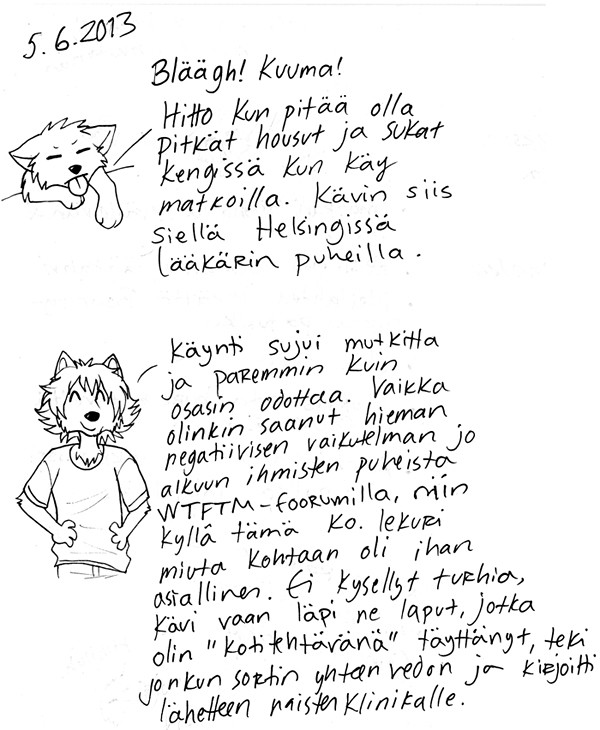 5.6.2013
Bläägh! Kuuma!
Hitto kun pitää olla
pitkät housut ja sukat
kengissä kun käy
matkoilla. Kävin siis
siellä Helsingissä
lääkärin puheilla.
Käynti sujui mutkitta
ja paremmin kuin
osasin odottaa. Vaikka
olinkin saanut hieman
negatiivisen vaikutelman jo
alkuun ihmisten puheista
WTFTM-foorumilla, niin
kyllä tämä ko. lekuri
miuta kohtaan oli ihan
asiallinen. Ei kysellyt turhia,
kävi vaan läpi ne laput, jotka
olin "kotitehtävänä" täyttänyt, teki
jonkun sortin yhteenvedon ja kirjoitti
lähetteen naistenklinikalle.